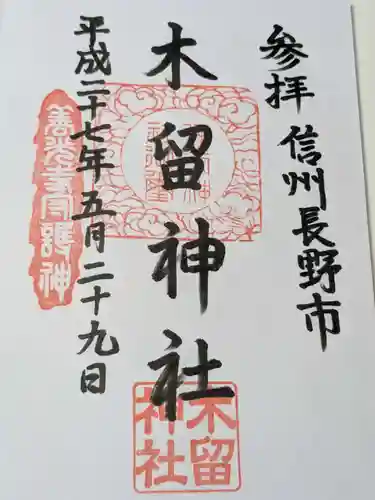 参拝 信州長野市
木留神社
平成二十七年五月二十九日
善光寺同護神
木留
神社